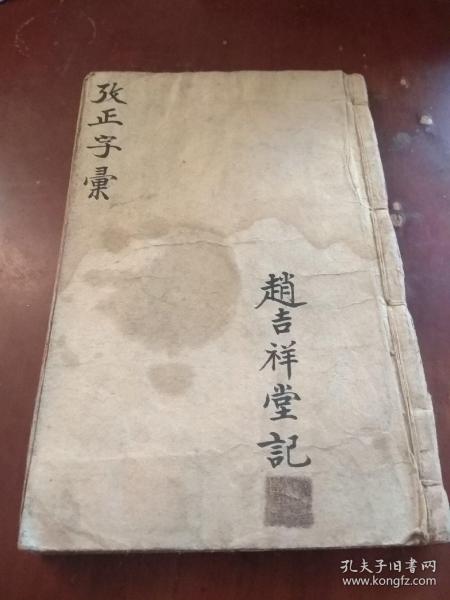 攷正字彙
趙吉祥堂記
孔夫子旧书网
www.kongfz.com